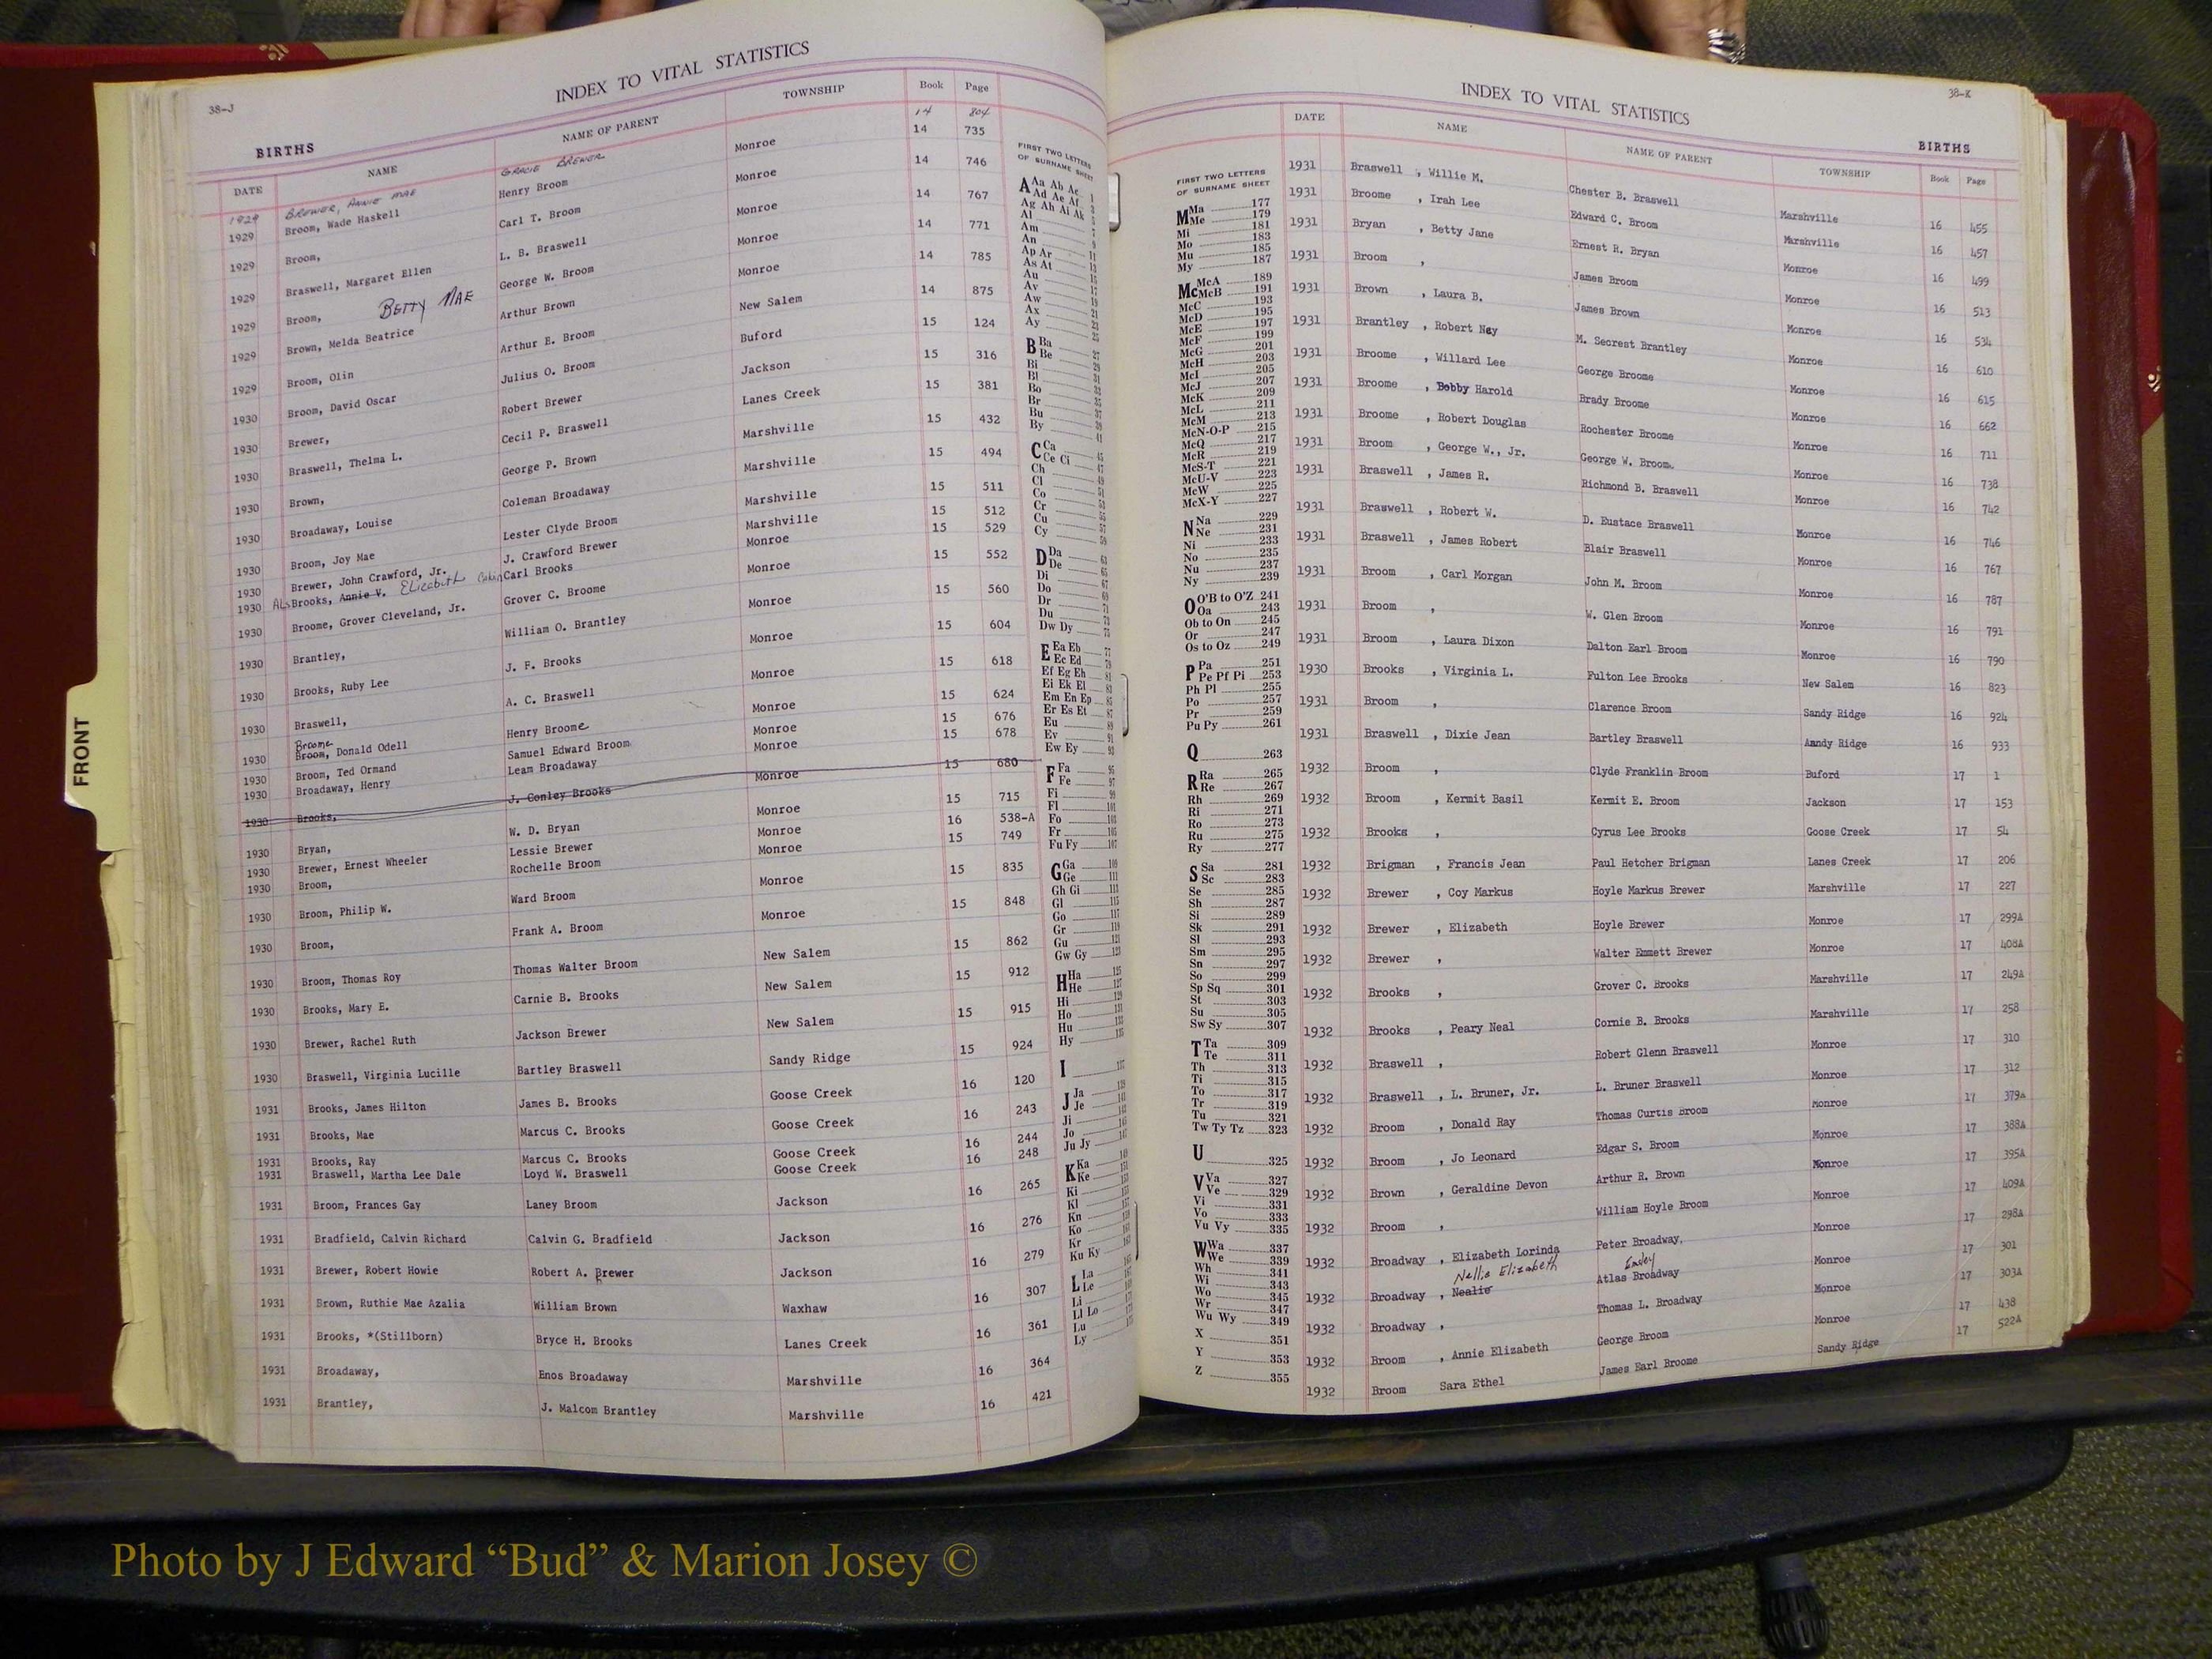 38-J
INDEX TO VITAL STATISTICS
BIRTHS
DATE NAME NAME OF PARENT TOWNSHIP Book Page
1929 BREWER, ANNIE MAE GRACIE BREWER 14 804
1929 Broom, Wade Haskell Henry Broom Monroe 14 735
1929 Broom, Carl T. Broom Monroe 14 746
1929 Braswell, Margaret Ellen L. B. Braswell Monroe 14 767
1929 Broom, BETTY MAE George W. Broom Monroe 14 771
1929 Brown, Melda Beatrice Arthur Brown Monroe 14 785
1929 Broom, Olin Arthur E. Broom New Salem 14 875
1930 Broom, David Oscar Julius O. Broom Buford 15 124
1930 Brewer, Robert Brewer Jackson 15 316
1930 Braswell, Thelma L. Cecil P. Braswell Lanes Creek 15 381
1930 Brown, George P. Brown Marshville 15 432
1930 Broadaway, Louise Coleman Broadaway Marshville 15 494
1930 Broom, Joy Mae Lester Clyde Broom Marshville 15 511
1930 Brewer, John Crawford, Jr. J. Crawford Brewer Marshville 15 512
1930 Brooks, Annie V. Elizabeth Carl Brooks Monroe 15 529
1930 Broome, Grover Cleveland, Jr. Grover C. Broome Monroe 15 552
1930 Brantley, William O. Brantley Monroe 15 560
1930 Brooks, Ruby Lee J. F. Brooks Monroe 15 604
1930 Braswell, A. C. Braswell Monroe 15 618
Broome
1930 Broom, Donald Odell Henry Broome Monroe 15 624
1930 Broom, Ted Ormand Samuel Edward Broom Monroe 15 676
1930 Broadaway, Henry Leam Broadaway Monroe 15 678
1930 Brooks, J. Conley Brooks Monroe 15 680
1930 Bryan, W. D. Bryan Monroe 15 715
1930 Brewer, Ernest Wheeler Lessie Brewer Monroe 16 538-A
1930 Broom, Rochelle Broom Monroe 15 749
1930 Broom, Philip W. Ward Broom Monroe 15 835
1930 Broom, Frank A. Broom Monroe 15 848
1930 Broom, Thomas Roy Thomas Walter Broom New Salem 15 862
1930 Brooks, Mary E. Carnie B. Brooks New Salem 15 912
1930 Brewer, Rachel Ruth Jackson Brewer New Salem 15 915
1930 Braswell, Virginia Lucille Bartley Braswell Sandy Ridge 15 924
1931 Brooks, James Hilton James B. Brooks Goose Creek 16 120
1931 Brooks, Mae Marcus C. Brooks Goose Creek 16 243
1931 Brooks, Ray Marcus C. Brooks Goose Creek 16 244
1931 Braswell, Martha Lee Dale Loyd W. Braswell Goose Creek 16 248
1931 Broom, Frances Gay Laney Broom Jackson 16 265
1931 Bradfield, Calvin Richard Calvin G. Bradfield Jackson 16 276
1931 Brewer, Robert Howie Robert A. Brewer Jackson 16 279
1931 Brown, Ruthie Mae Azalia William Brown Waxhaw 16 307
1931 Brooks, *(Stillborn) Bryce H. Brooks Lanes Creek 16 361
1931 Broadaway, Enos Broadaway Marshville 16 364
1931 Brantley, J. Malcom Brantley Marshville 16 421
FIRST TWO LETTERS
OF SURNAME SHEET
A Aa Ab Ac
Ad Ae Af
Ag Ah Ai Ak
Al
Am
An
Ap Ar
As At
Au
Av
Aw
Ax
Ay
B Ba
Be
Bi
Bl
Bo
Br
Bu
By
C Ca
Ce Ci
Ch
Cl
Co
Cr
Cu
Cy
D Da
De
Di
Do
Dr
Du
Dw Dy
E Ea Eb
Ec Ed
Ef Eg Eh
Ei Ek El
Em En Ep
Er Es Et
Eu
Ev
Ew Ey
F Fa
Fe
Fi
Fl
Fo
Fr
Fu Fy
G Ga
Ge
Gh Gi
Gl
Go
Gr
Gu
Gw Gy
H Ha
He
Hi
Ho
Hu
Hy
I
J Ja
Je
Ji
Jo
Ju Jy
K Ka
Ke
Ki
Kl
Kn
Ko
Kr
Ku Ky
L La
Le
Li
Ll Lo
Lu
Ly
FRONT
38-K
INDEX TO VITAL STATISTICS
BIRTHS
FIRST TWO LETTERS
OF SURNAME SHEET
M Ma 177
Me 179
Mi 181
Mo 183
Mu 185
My 187
Mc McA 189
McB 191
McC 193
McD 195
McE 197
McF 199
McG 201
McH 203
McI 205
McJ 207
McK 209
McL 211
McM 213
McN-O-P 215
McQ 217
McR 219
McS-T 221
McU-V 223
McW 225
McX-Y 227
N Na 229
Ne 231
Ni 233
No 235
Nu 237
Ny 239
O O'B to O'Z 241
Oa 243
Ob to On 245
Or 247
Os to Oz 249
P Pa 251
Pe Pf Pi 253
Ph Pl 255
Po 257
Pr 259
Pu Py 261
Q 263
R Ra 265
Re 267
Rh 269
Ri 271
Ro 273
Ru 275
Ry 277
S Sa 281
Sc 283
Se 285
Sh 287
Si 289
Sk 291
Sl 293
Sm 295
Sn 297
So 299
Sp Sq 301
St 303
Su 305
Sw Sy 307
T Ta 309
Te 311
Th 313
Ti 315
To 317
Tr 319
Tu 321
Tw Ty Tz 323
U 325
V Va 327
Ve 329
Vi 331
Vo 333
Vu Vy 335
W Wa 337
We 339
Wh 341
Wi 343
Wo 345
Wr 347
Wu Wy 349
X 351
Y 353
Z 355
DATE NAME NAME OF PARENT TOWNSHIP Book Page
1931 Braswell , Willie M. Chester B. Braswell Marshville 16 455
1931 Broome , Irah Lee Edward C. Broom Marshville 16 457
1931 Bryan , Betty Jane Ernest R. Bryan Monroe 16 499
1931 Broom , James Broom Monroe 16 513
1931 Brown , Laura B. James Brown Monroe 16 534
1931 Brantley , Robert Nay M. Secrest Brantley Monroe 16 610
1931 Broome , Willard Lee George Broome Monroe 16 615
1931 Broome , Bobby Harold Brady Broome Monroe 16 662
1931 Broome , Robert Douglas Rochester Broome Monroe 16 711
1931 Broom , George W., Jr. George W. Broom Monroe 16 738
1931 Braswell , James R. Richmond B. Braswell Monroe 16 742
1931 Braswell , Robert W. D. Eustace Braswell Monroe 16 746
1931 Braswell , James Robert Blair Braswell Monroe 16 767
1931 Broom , Carl Morgan John M. Broom Monroe 16 787
1931 Broom , W. Glen Broom Monroe 16 791
1931 Broom , Laura Dixon Dalton Earl Broom Monroe 16 790
1930 Brooks , Virginia L. Fulton Lee Brooks New Salem 16 823
1931 Broom , Clarence Broom Sandy Ridge 16 924
1931 Braswell , Dixie Jean Bartley Braswell Aandy Ridge 16 933
1932 Broom , Clyde Franklin Broom Buford 17 1
1932 Broom , Kermit Basil Kermit E. Broom Jackson 17 153
1932 Brooks , Cyrus Lee Brooks Goose Creek 17 54
1932 Brigman , Francis Jean Paul Hetcher Brigman Lanes Creek 17 206
1932 Brewer , Coy Markus Hoyle Markus Brewer Marshville 17 227
1932 Brewer , Elizabeth Hoyle Brewer Monroe 17 299A
1932 Brewer , Walter Emmett Brewer Monroe 17 408A
1932 Brooks , Grover C. Brooks Marshville 17 249A
1932 Brooks , Peary Neal Cornie B. Brooks Marshville 17 258
1932 Braswell , Robert Glenn Braswell Monroe 17 310
1932 Braswell , L. Bruner, Jr. L. Bruner Braswell Monroe 17 312
1932 Broom , Donald Ray Thomas Curtis Broom Monroe 17 379A
1932 Broom , Jo Leonard Edgar S. Broom Monroe 17 388A
1932 Brown , Geraldine Devon Arthur R. Brown Monroe 17 395A
1932 Broom , William Hoyle Broom Monroe 17 409A
1932 Broadway , Elizabeth Lorinda Peter Broadway, Monroe 17 298A
Nellie Elizabeth
1932 Broadway , Nealie Atlas Broadway Monroe 17 301
1932 Broadway , Thomas L. Broadway Monroe 17 303A
1932 Broom , Annie Elizabeth George Broom Monroe 17 438
1932 Broom Sara Ethel James Earl Broome Sandy Ridge 17 522A
Photo by J Edward “Bud” & Marion Josey ©